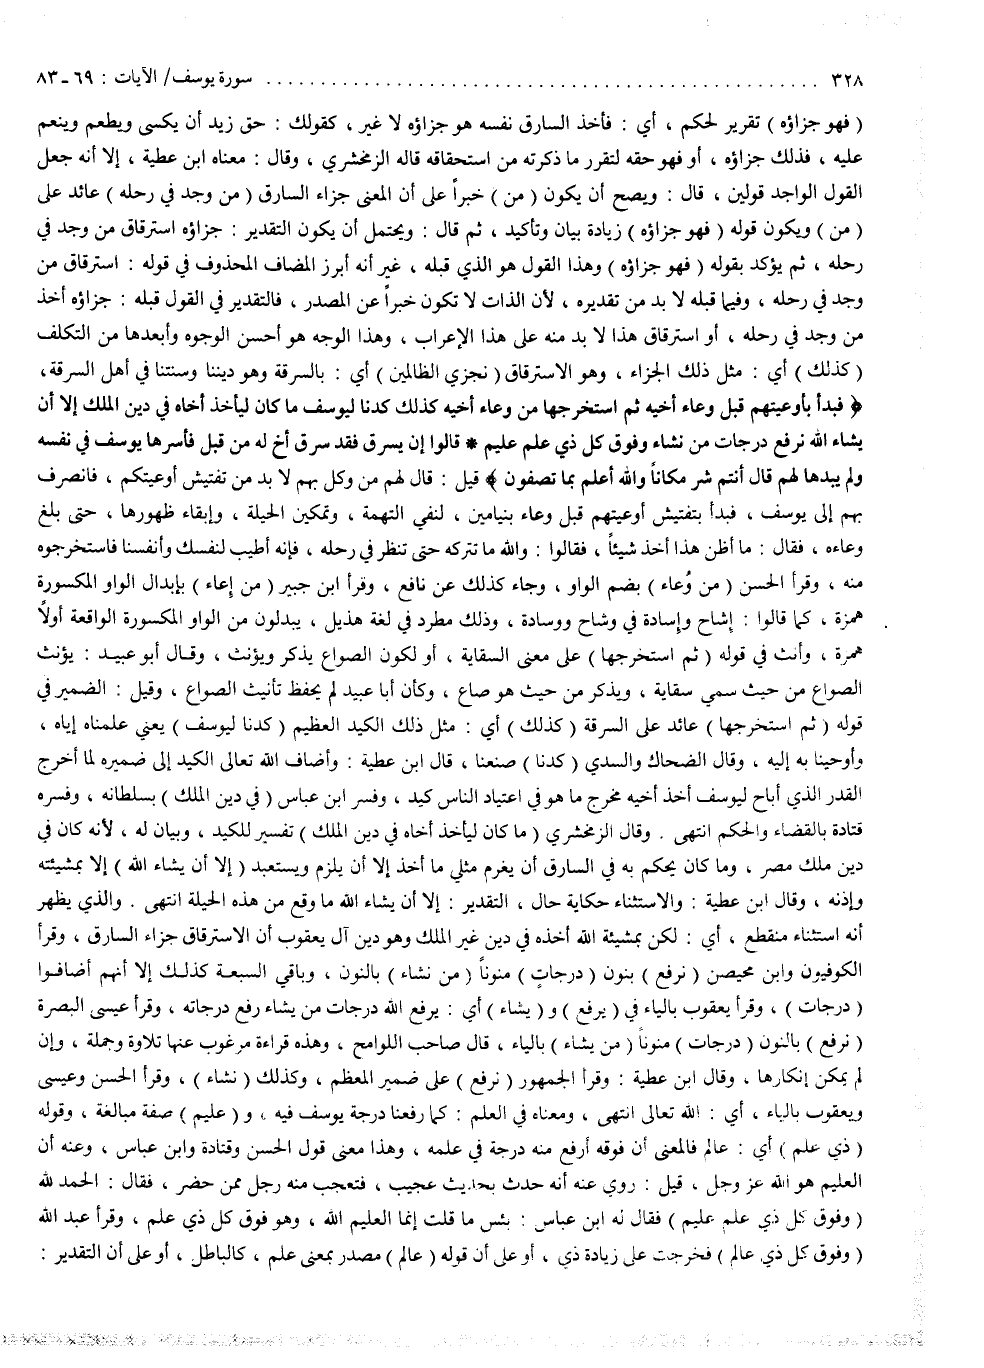 ٣٢٨ ........................................ سورة يوسف/ الآيات : ٦٩ ـ ٨٣
( فهو جزاؤه ) تقرير لحكم ، أي : فأخذ السارق نفسه هو جزاؤه لا غير ، كقولك : حق زيد أن يكسى ويطعم وينعم
عليه ، فذلك جزاؤه ، أو فهو حقه لتقرر ما ذكرته من استحقاقه قاله الزمخشري ، وقال : معناه ابن عطية ، إلا أنه جعل
القول الواحد قولين ، قال : ويصح أن يكون ( من ) خبراً على أن المعنى جزاء السارق ( من وجد في رحله ) عائد على
( من ) ويكون قوله ( فهو جزاؤه ) زيادة بيان وتأكيد ، ثم قال : ويحتمل أن يكون التقدير : جزاؤه استرقاق من وجد في
رحله ، ثم يؤكد بقوله ( فهو جزاؤه ) وهذا القول هو الذي قبله ، غير أنه أبرز المضاف المحذوف في قوله : استرقاق من
وجد في رحله ، وفيما قبله لا بد من تقديره ، لأن الذات لا تكون خبراً عن المصدر ، فالتقدير في القول قبله : جزاؤه أخذ
من وجد في رحله ، أو استرقاق هذا لا بد منه على هذا الإعراب ، وهذا الوجه هو أحسن الوجوه وأبعدها من التكلف
( كذلك ) أي : مثل ذلك الجزاء ، وهو الاسترقاق ( نجزي الظالمين ) أي : بالسرقة وهو ديننا وسنتنا في أهل السرقة ،
﴿ فبدأ بأوعيتهم قبل وعاء أخيه ثم استخرجها من وعاء أخيه كذلك كدنا ليوسف ما كان ليأخذ أخاه في دين الملك إلا أن
يشاء الله نرفع درجات من نشاء وفوق كل ذي علم عليم * قالوا إن يسرق فقد سرق أخ له من قبل فأسرها يوسف في نفسه
ولم يبدها لهم قال أنتم شر مكاناً والله أعلم بما تصفون ﴾ قيل : قال لهم من وكل بهم لا بد من تفتيش أوعيتكم ، فانصرف
بهم إلى يوسف ، فبدأ بتفتيش أوعيتهم قبل وعاء بنيامين ، لنفي التهمة ، وتمكين الحيلة ، وإبقاء ظهورها ، حتى بلغ
وعاءه ، فقال : ما أظن هذا أخذ شيئاً ، فقالوا : والله ما تتركه حتى تنظر في رحله ، فإنه أطيب لنفسك وأنفسنا فاستخرجوه
منه ، وقرأ الحسن ( من وُعاء ) بضم الواو ، وجاء كذلك عن نافع ، وقرأ ابن جبير ( من إعاء ) بإبدال الواو المكسورة
همزة ، كما قالوا : إشاح وإسادة في وشاح ووسادة ، وذلك مطرد في لغة هذيل ، يبدلون من الواو المكسورة الواقعة أولاً
همزة ، وأنث في قوله ( ثم استخرجها ) على معنى السقاية ، أو لكون الصواع يذكر ويؤنث ، وقال أبو عبيد : يؤنث
الصواع من حيث سمي سقاية ، ويذكر من حيث هو صاع ، وكأن أبا عبيد لم يحفظ تأنيث الصواع ، وقيل : الضمير في
قوله ( ثم استخرجها ) عائد على السرقة ( كذلك ) أي : مثل ذلك الكيد العظيم ( كدنا ليوسف ) يعني علمناه إياه ،
وأوحينا به إليه ، وقال الضحاك والسدي ( كدنا ) صنعنا ، قال ابن عطية : وأضاف الله تعالى الكيد إلى ضميره لما أخرج
القدر الذي أباح ليوسف أخذ أخيه مخرج ما هو في اعتياد الناس كيد ، وفسر ابن عباس ( في دين الملك ) بسلطانه ، وفسره
قتادة بالقضاء والحكم انتهى . وقال الزمخشري ( ما كان ليأخذ أخاه في دين الملك ) تفسير للكيد ، وبيان له ، لأنه كان في
دين ملك مصر ، وما كان يحكم به في السارق أن يغرم مثلي ما أخذ إلا أن يلزم ويستعبد ( إلا أن يشاء الله ) إلا بمشيئته
وإذنه ، وقال ابن عطية : والاستثناء حكاية حال ، التقدير : إلا أن يشاء الله ما وقع من هذه الحيلة انتهى . والذي يظهر
أنه استثناء منقطع ، أي : لكن بمشيئة الله أخذه في دين غير الملك وهو دين آل يعقوب أن الاسترقاق جزاء السارق ، وقرأ
الكوفيون وابن محيصن ( نرفع ) بنون ( درجاتٍ ) منوناً ( من نشاء ) بالنون ، وباقي السبعة كذلك إلا أنهم أضافوا
( درجات ) ، وقرأ يعقوب بالياء في ( يرفع ) و ( يشاء ) أي : يرفع الله درجات من يشاء رفع درجاته ، وقرأ عيسى البصرة
( نرفع ) بالنون ( درجات ) منوناً ( من يشاء ) بالياء ، قال صاحب اللوامح ، وهذه قراءة مرغوب عنها تلاوة وجملة ، وإن
لم يمكن إنكارها ، وقال ابن عطية : وقرأ الجمهور ( نرفع ) على ضمير المعظم ، وكذلك ( نشاء ) ، وقرأ الحسن وعيسى
ويعقوب بالياء ، أي : الله تعالى انتهى ، ومعناه في العلم : كما رفعنا درجة يوسف فيه ، و ( عليم ) صفة مبالغة ، وقوله
( ذي علم ) أي : عالم فالمعنى أن فوقه أرفع منه درجة في علمه ، وهذا معنى قول الحسن وقتادة وابن عباس ، وعنه أن
العليم هو الله عز وجل ، قيل : روي عنه أنه حدث بحديث عجيب ، فتعجب منه رجل ممن حضر ، فقال : الحمد لله
( وفوق كل ذي علم عليم ) فقال له ابن عباس : بئس ما قلت إنما العليم الله ، وهو فوق كل ذي علم ، وقرأ عبد الله
( وفوق كل ذي عالم ) فخرجت على زيادة ذي ، أو على أن قوله ( عالم ) مصدر بمعنى علم ، كالباطل ، أو على أن التقدير :